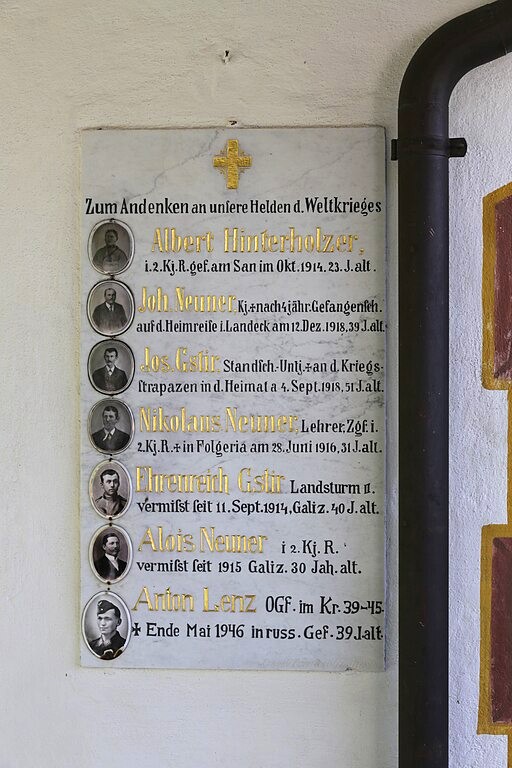 Zum Andenken an unsere Helden d. Weltkrieges
Albert Hinterholzer,
i. 2. Kj. R. gef. am San im Okt. 1914. 23. J. alt.
Joh. Neuner, Kj. + nach 4 jähr. Gefangensch.
auf d. Heimreise i. Landeck am 12. Dez. 1918, 39 J. alt.
Jos. Gstir Standsch.-Untj. + an d. Kriegs-
strapazen in d. Heimat a 4. Sept. 1918, 51 J. alt.
Nikolaus Neuner, Lehrer, Zgf. i.
2. Kj. R. + in Folgeria am 28. Juni 1916, 31 J. alt.
Ehrenreich Gstir Landsturm II.
vermißt seit 11. Sept. 1914, Galiz. 40 J. alt.
Alois Neuner i 2. Kj. R.
vermißt seit 1915 Galiz. 30 Jah. alt.
Anton Lenz OGf. im Kr. 39-45.
+ Ende Mai 1946 in russ. Gef. 39. J. alt